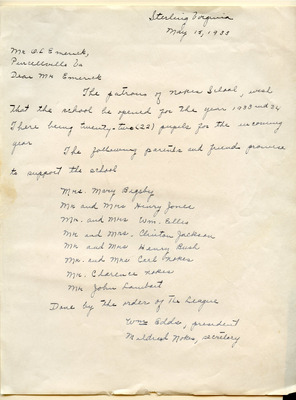 Sterling Virginia
May 15, 1933
Mr. O.L. Emerick,
Purcellville Va
Dear Mr Emerick
The patrons of Nokes School, wish
that the school be opened for the year 1933 and 34
There being twenty-two (22) pupils for the incoming
year
The following parents and friends promise
to support the school
Mrs. Mary Bagsby
Mr and Mrs Henry Jones
Mr. and Mrs Wm. Ellis
Mr. and Mrs. Clinton Jackson
Mr and Mrs Henry Bush
Mr. and Mrs Carl Nokes
Mr. Clarence Nokes
Mr John Lambert
Done by the order of The League
Wm Edds, president
Mildred Nokes, secretary